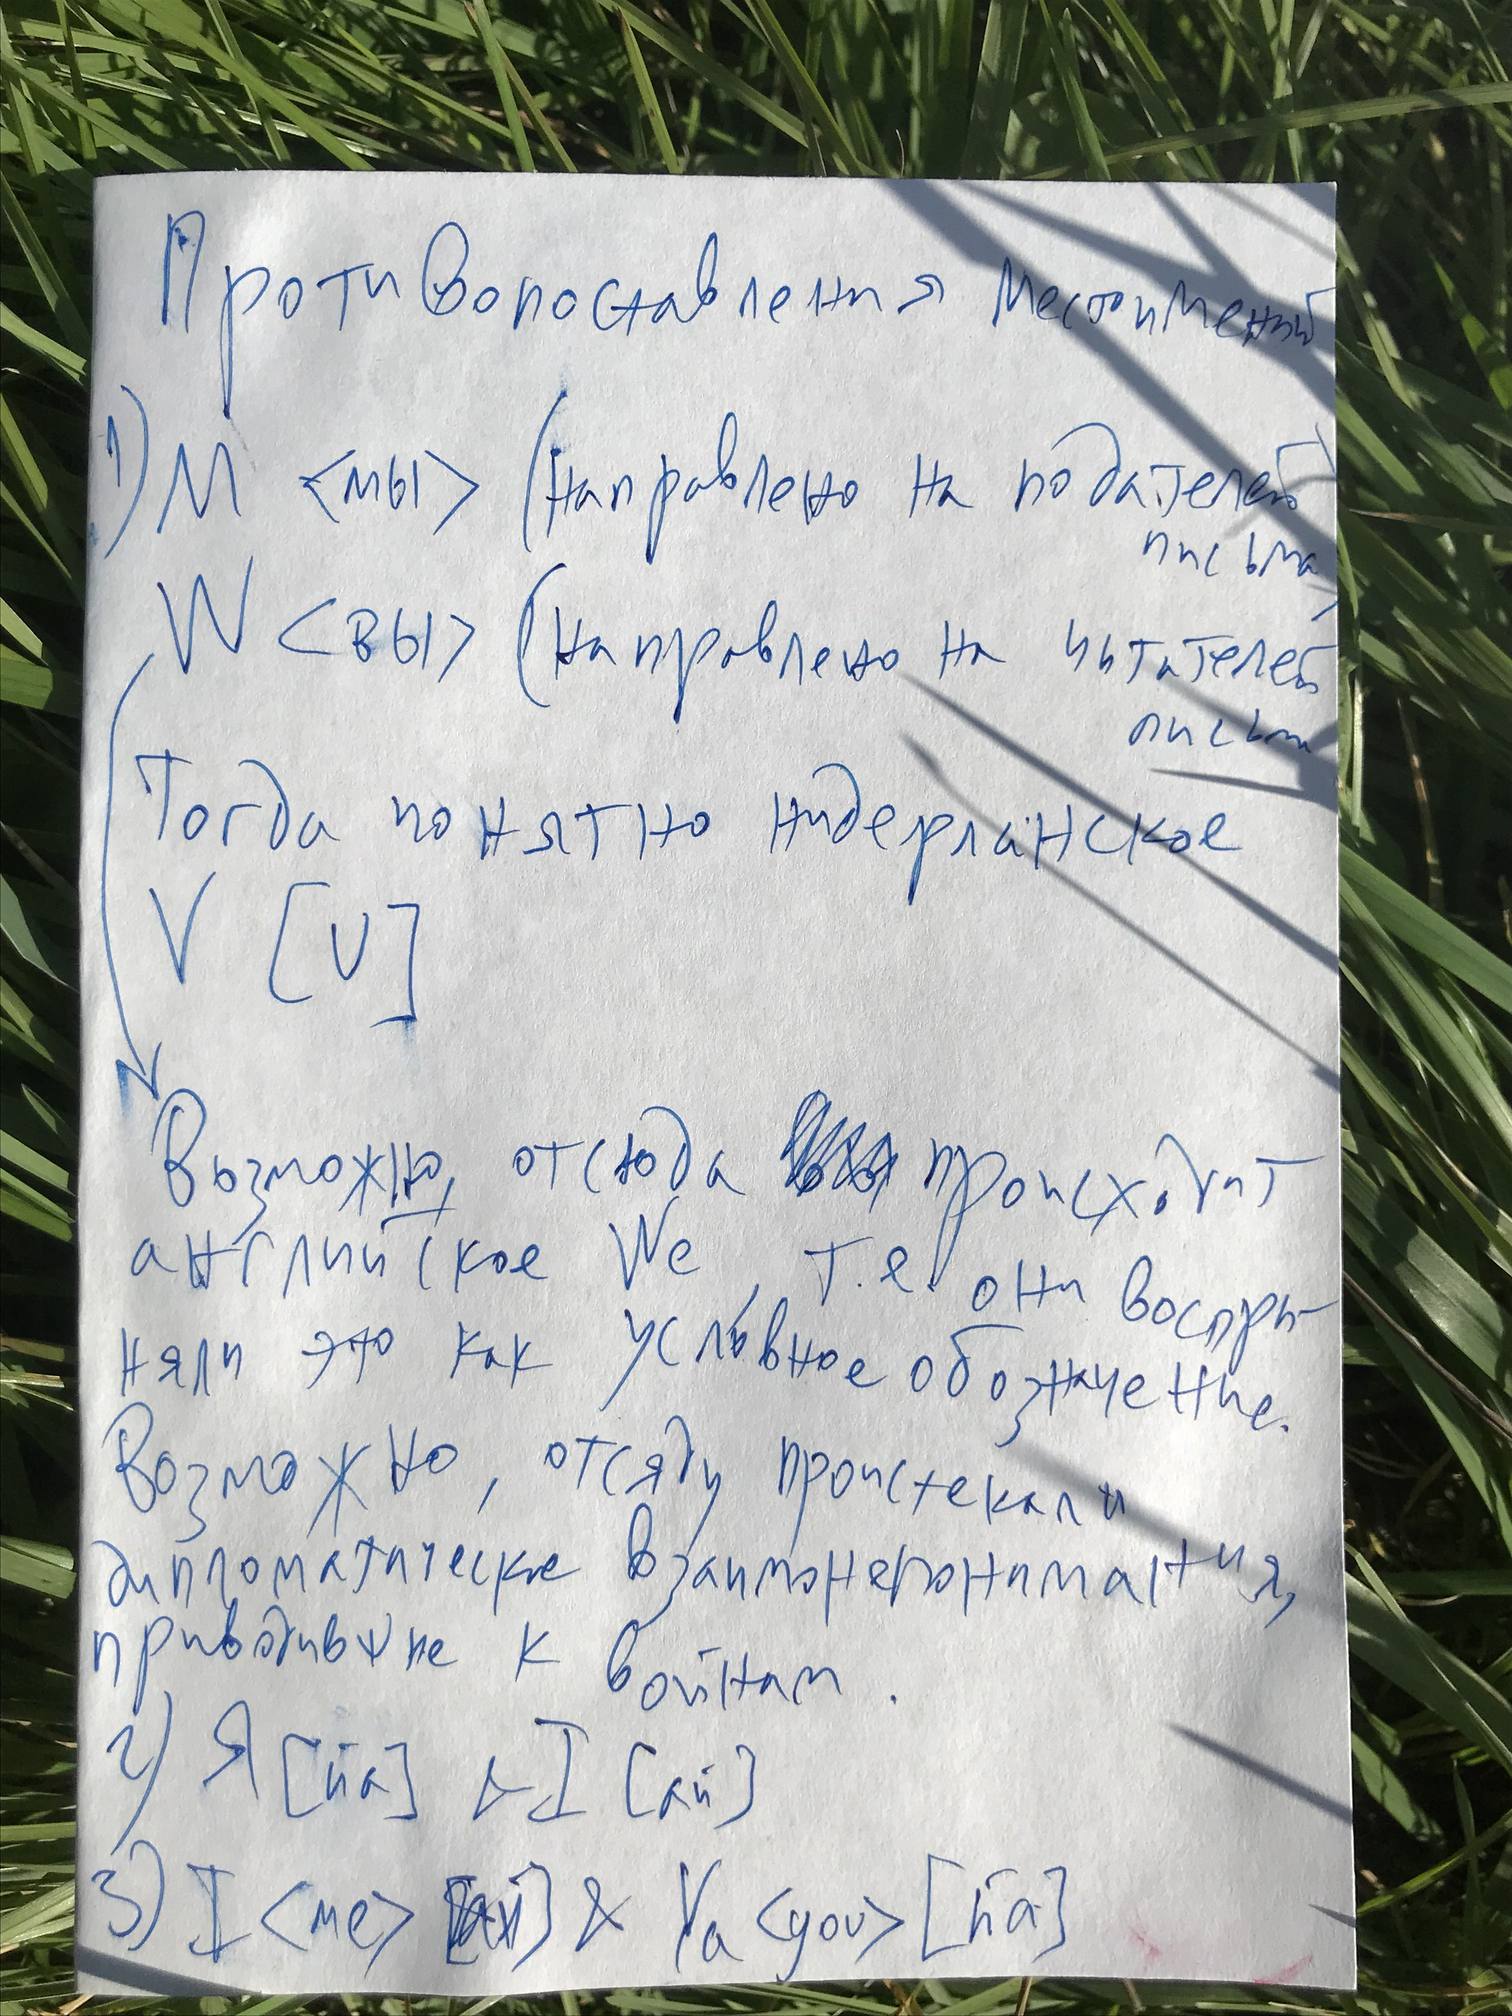 Противопоставления местоимений
1) М <мы> (направлено на подателей
письма)
W <вы> (направлено на читателей
письма
Тогда понятно нидерланское
V [U]
Возможно, отсюда происходит
английское We, т.е. они воспри-
няли это как условное обозначение.
Возможно, отсяду проистекали
дипломатическое взаимонепонимания,
приводившие к войнам.
2) Я [йа] & I [ай]
3) I <me> [ай] & Ya <you> [йа]